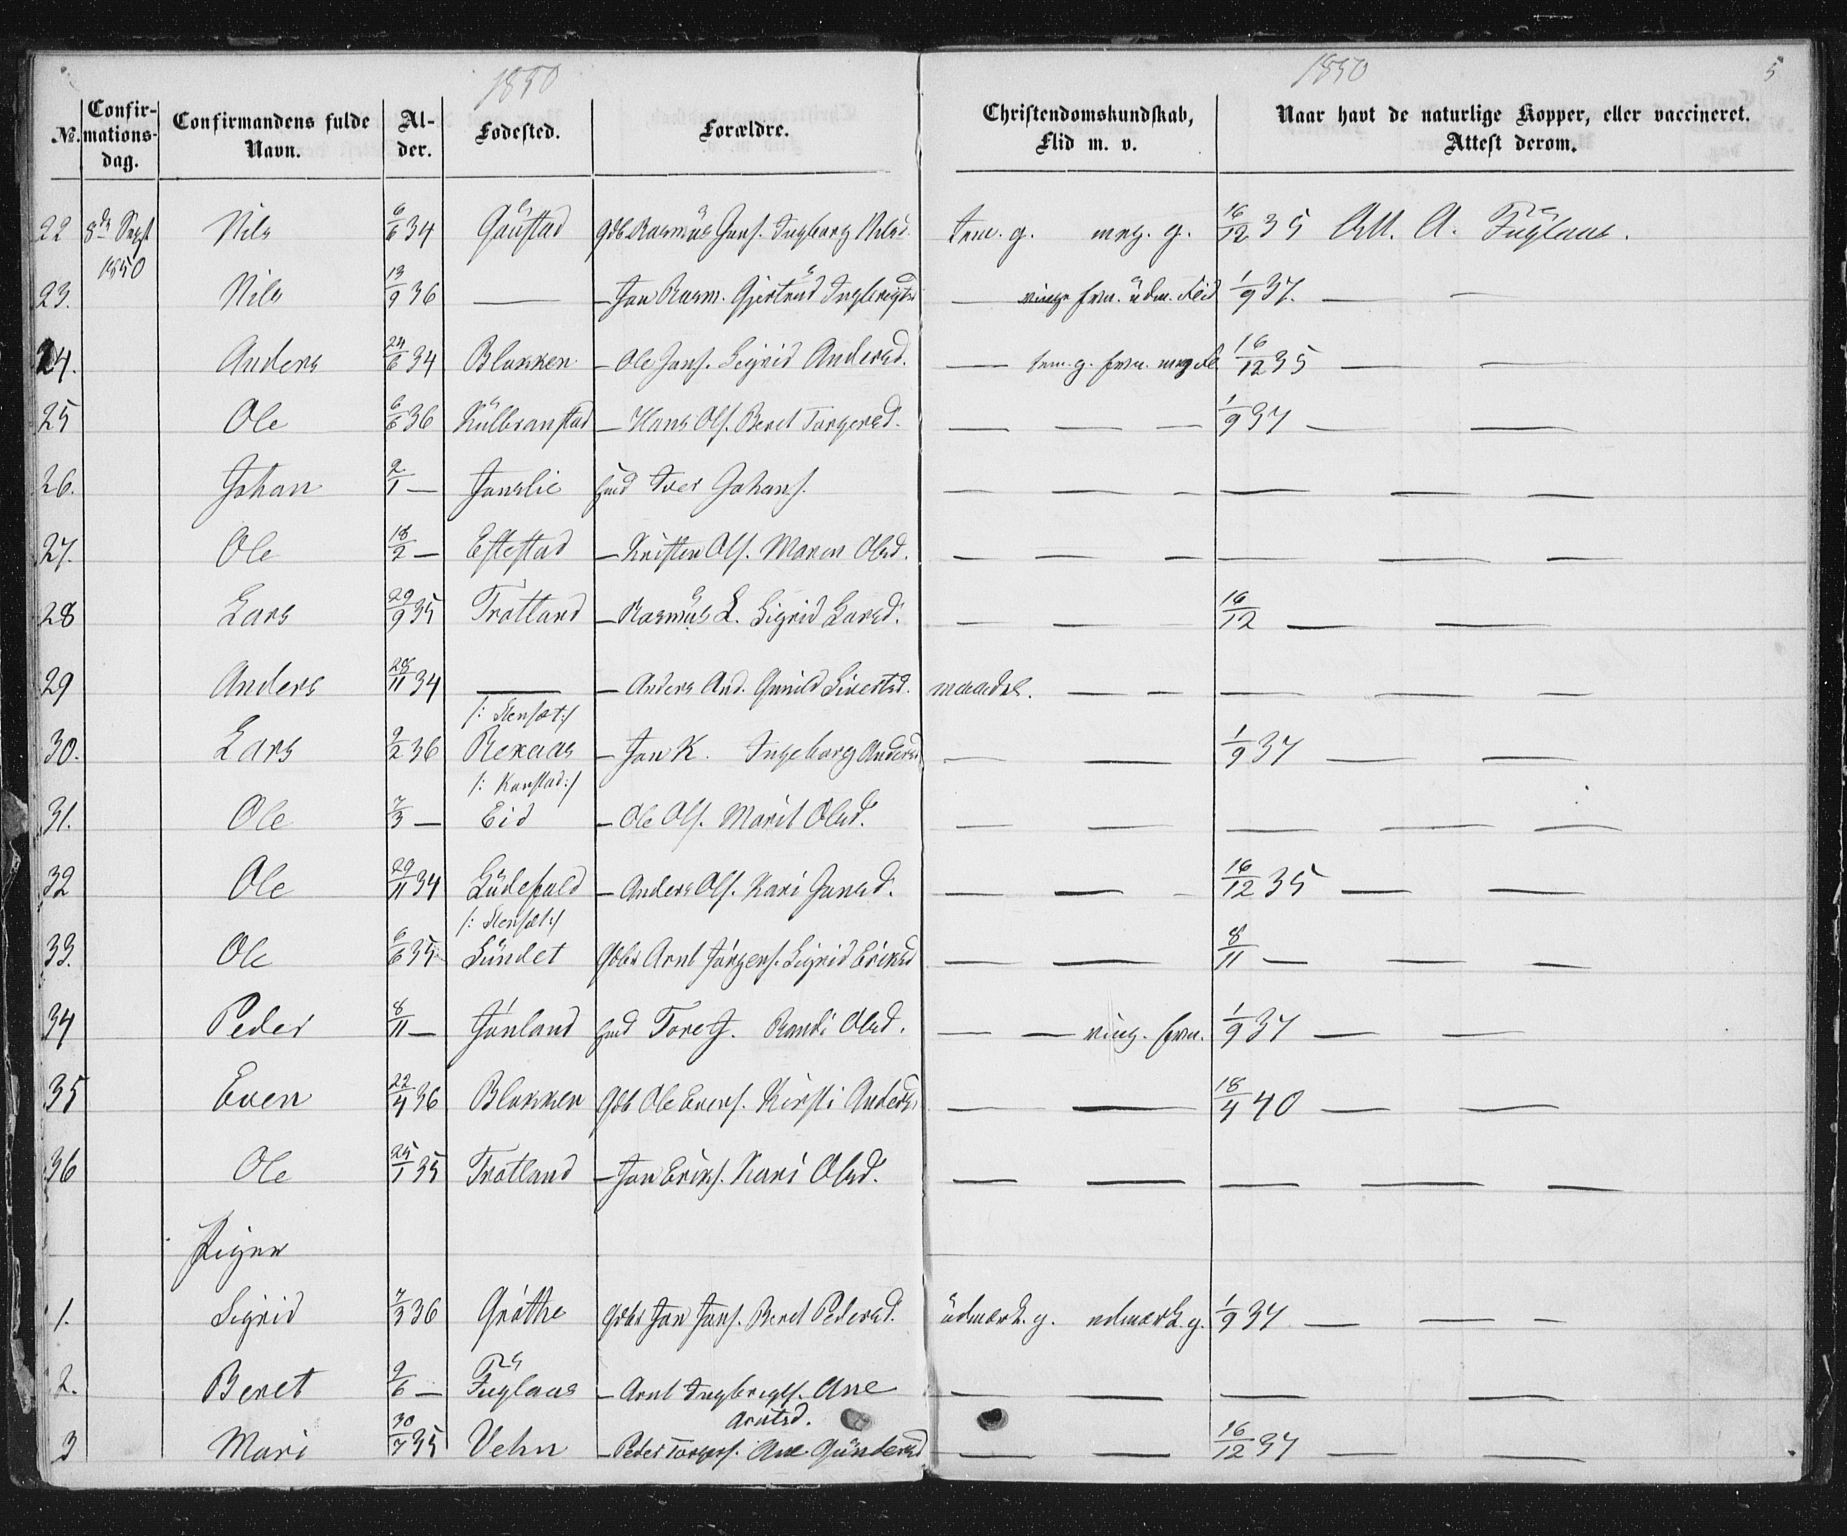 1850
1850
5
No.
Confirmationsdag.
Confirmandens fulde Navn.
Alder.
Fødested.
Forældre.
Christendomskundskab, Flid m. v.
Naar havt de naturlige Kopper, eller vaccineret. Attest derom.
22 8de Sept 1850 Nils 6/6 34 Gaustad Gdb. Rasmus Jons. Ingborg Nilsd. tem. g. meg. g. 16/12 35 Att. A. Fuglaas.
23. Nils 13/9 36 — — Jon Rasm. Gjertrud Ingbrigtsd — 1/9 37. — —
24. Anders 24/6 34 Blakken — Ole Jons. Sigrid Andersd. — tem. g. 16/12 35 — —
25 Ole 6/6 36 — Hans Ols. Beret Torgersd. — — — 1/9 37 — —
26. Johan 2/1 — Jonslie Iver Johans. — — — — — —
27. Ole 18/2 — Eftestad — Kristen Ols. Maren Olsd. — — — — — —
28 Lars 29/9 35 Trotland — Rasmus L. Sigrid Larsd. — — — 16/12 — —
29 Anders 28/11 34 — — Anders And. Gunild Sivertsd. maadel. — — — — —
/: Stensæt:/
30. Lars 9/2 36 Rekaas — Jon K. Ingeborg Andersd — — 1/9 37 — —
/: Kanstad:/
31. Ole 7/3 — Eid — Ole Ols. Marit Olsd. — — — — —
32 Ole 29/11 34 — Anders Ols. Kari Jonsd. — — - 16/12 35 — —
/: Stensæt:/
33. Ole 6/6 35 Sundet Gdbr Arnt Jørgens. Sigrid Eriksd — — 8/11 — — —
34 Peder 8/11 — Jönland Tore J. Randi Olsd. — — ring. frm. 1/9 37 — —
35 Even 22/4 36 Blakken Gdb Ole Evens. Kirsti Andersd — — 18/4 40 — —
36 Ole 25/1 35 Trotland — Jon Eriks. Kari Olsd. — — — — —
Piger
1. Sigrid 7/3 36 Grøtthe Gdbr Jon Jons. Beret Pedersd. udmærk. g. udmærk. g. 1/9 37 — — —
2. Beret 9/6 — Fuglaas — Arnt Ingbrigts. Ane — — — —
Arntsd.
3 Mari 30/7 35 Vehn — Peder Torgers. Ane Gundersd — — 16/12 37 — —